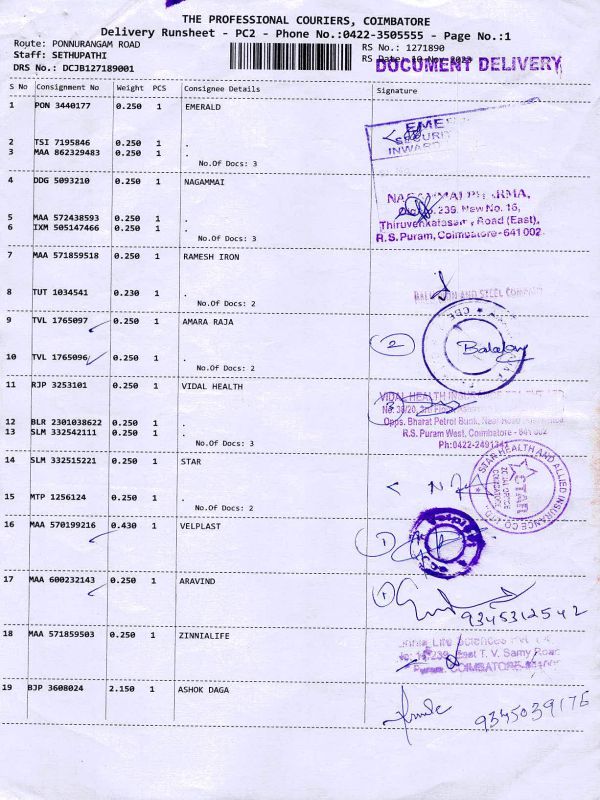 THE PROFESSIONAL COURIERS, COIMBATORE
Delivery Runsheet - PC2 - Phone No.:0422-3505555 - Page No.:1
Route: PONNURANGAM ROAD
Staff: SETHUPATHI
DRS No.: DCJB127189001
RS No.: 1271890
DOCUMENT DELIVERY
S No Consignment No Weight PCS Consignee Details Signature
1 PON 3440177 0.250 1 EMERALD
2 TSI 7195846 0.250 1 .
3 MAA 862329483 0.250 1 .
No.Of Docs: 3
SECURITY
INWARD
4 DDG 5093210 0.250 1 NAGAMMAI
5 MAA 572438593 0.250 1 .
6 IXM 505147466 0.250 1 .
No.Of Docs: 3
239, New No. 16,
Thiruvenkatasamy Road (East),
R.S.Puram, Coimbatore-641 002
7 MAA 571859518 0.250 1 RAMESH IRON
8 TUT 1034541 0.230 1 .
No.Of Docs: 2
AND STEEL COMPANY
9 TVL 1765097 0.250 1 AMARA RAJA
10 TVL 1765096 0.250 1 .
No.Of Docs: 2
2
Balaji
11 RJP 3253101 0.250 1 VIDAL HEALTH
12 BLR 2301038622 0.250 1 .
13 SLM 332542111 0.250 1 .
No.Of Docs: 3
VIDAL HEALTH
Opps. Bharat Petrol Bunk,
R.S. Puram West, Coimbatore - 641 002
14 SLM 332515221 0.250 1 STAR
15 MTP 1256124 0.250 1 .
No.Of Docs: 2
STAR HEALTH AND ALLIED INSURANCE CO. LTD.
STAR
ZONAL OFFICE
COIMBATORE
16 MAA 570199216 0.430 1 VELPLAST
1
17 MAA 600232143 0.250 1 ARAVIND
1
9345312542
18 MAA 571859503 0.250 1 ZINNIALIFE
Life Sciences Pvt
East T. V. Samy Road
COIMBATORE
19 BJP 3608024 2.150 1 ASHOK DAGA
9345039176